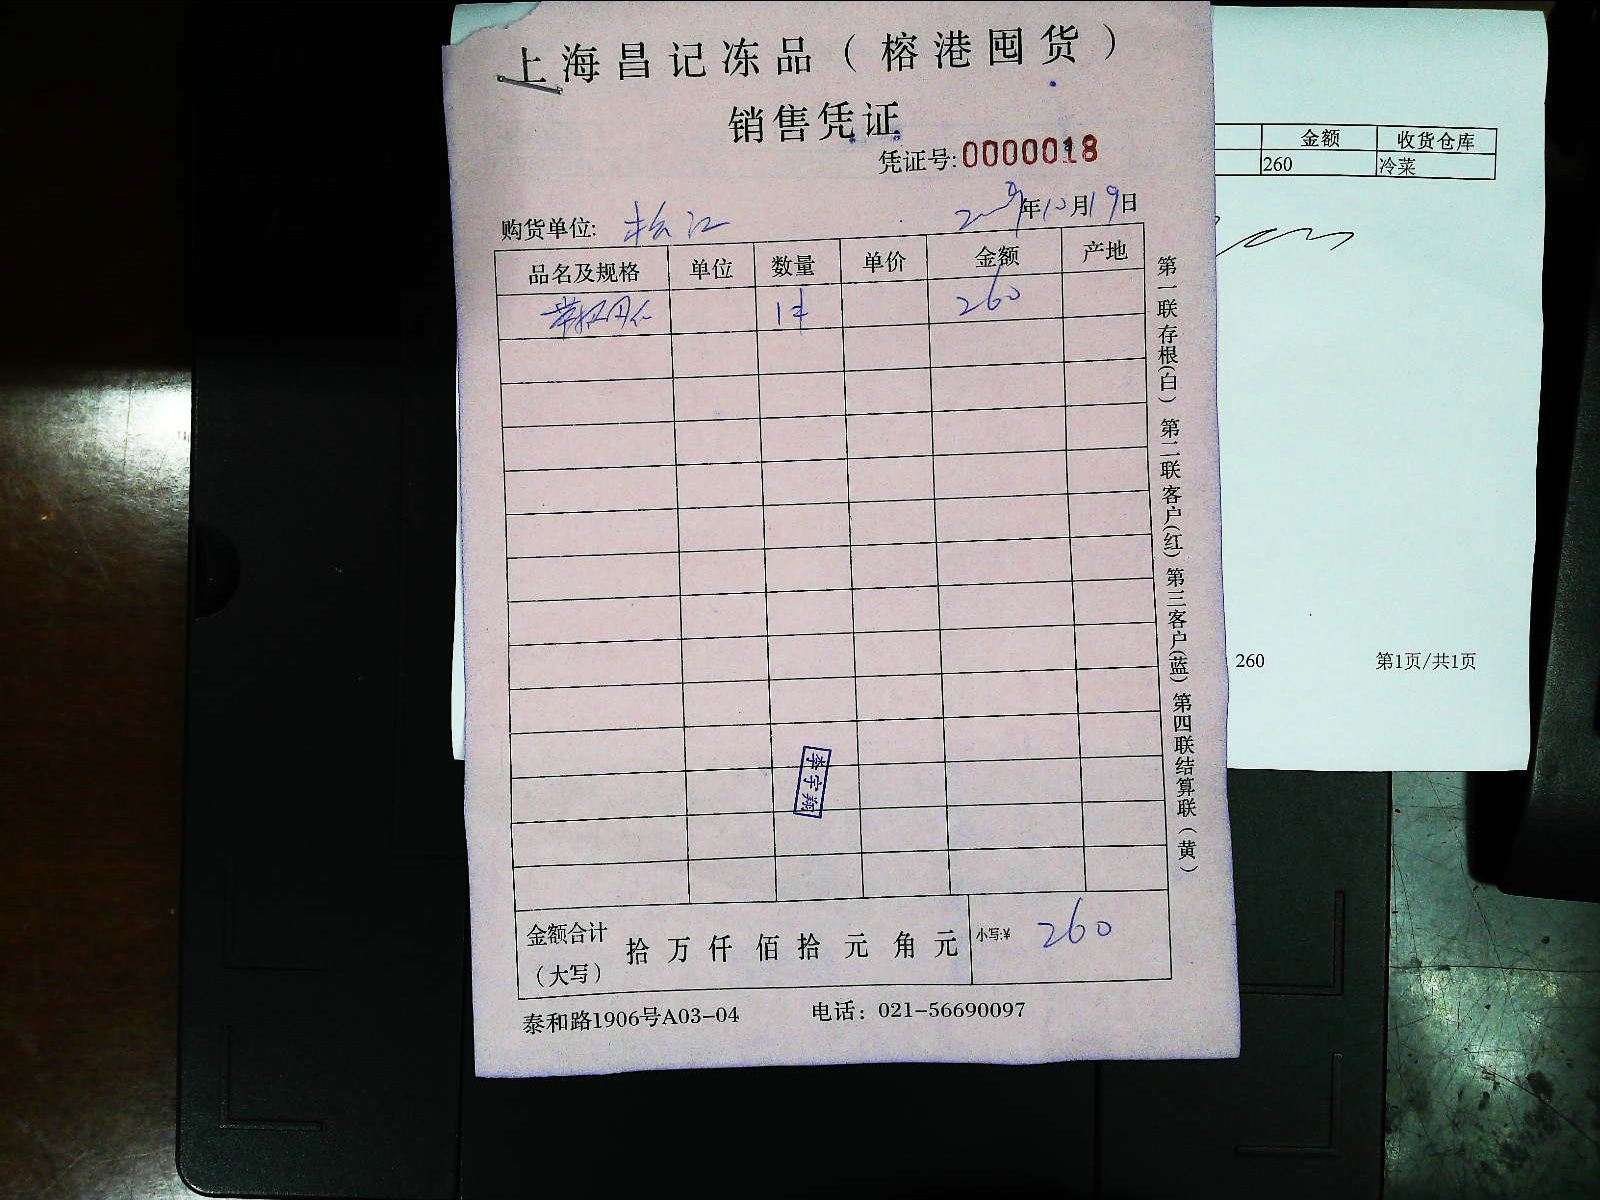 上海昌记冻品（榕港囤货）
销售凭证
凭证号:0000018
购货单位: 松江 年10月19日
品名及规格 单位 数量 单价 金额 产地
1件 260
金额合计（大写） 拾 万 仟 佰 拾 元 角 元 小写:¥ 260
泰和路1906号A03-04 电话：021-56690097
第一联存根(白) 第二联客户(红) 第三客户(蓝) 第四联结算联(黄)
李宇翔
金额 收货仓库
260 冷菜
260 第1页/共1页